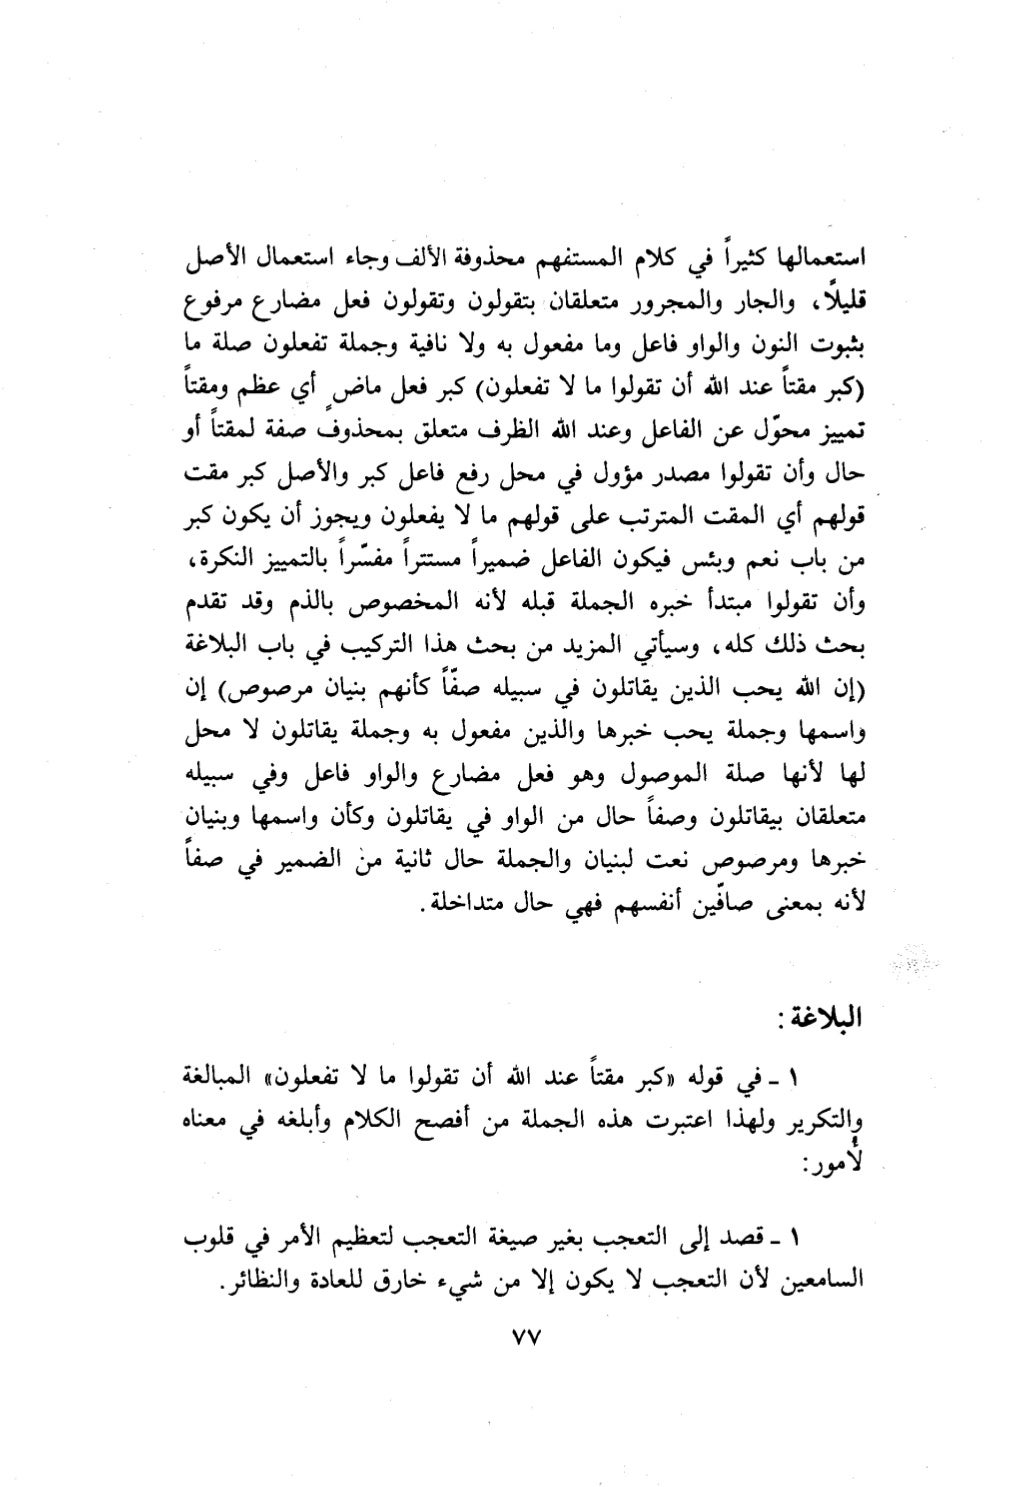 استعمالها كثيراً في كلام المستفهم محذوفة الألف وجاء استعمال الأصل
قليلاً، والجار والمجرور متعلقان بتقولون وتقولون فعل مضارع مرفوع
بثبوت النون والواو فاعل وما مفعول به ولا نافية وجملة تفعلون صلة ما
(كبر مقتاً عند الله أن تقولوا ما لا تفعلون) كبر فعل ماضٍ أي عظم ومقتاً
تمييز محوّل عن الفاعل وعند الله الظرف متعلق بمحذوف صفة لمقتاً أو
حال وأن تقولوا مصدر مؤول في محل رفع فاعل كبر والأصل كبر مقت
قولهم أي المقت المترتب على قولهم ما لا يفعلون ويجوز أن يكون كبر
من باب نعم وبئس فيكون الفاعل ضميراً مستتراً مفسّراً بالتمييز النكرة،
وأن تقولوا مبتدأ خبره الجملة قبله لأنه المخصوص بالذم وقد تقدم
بحث ذلك كله، وسيأتي المزيد من بحث هذا التركيب في باب البلاغة
(إن الله يحب الذين يقاتلون في سبيله صفّاً كأنهم بنيان مرصوص) إن
واسمها وجملة يحب خبرها والذين مفعول به وجملة يقاتلون لا محل
لها لأنها صلة الموصول وهو فعل مضارع والواو فاعل وفي سبيله
متعلقان بيقاتلون وصفاً حال من الواو في يقاتلون وكأن واسمها وبنيان
خبرها ومرصوص نعت لبنيان والجملة حال ثانية من الضمير في صفاً
لأنه بمعنى صافّين أنفسهم فهي حال متداخلة.
البلاغة:
١ ـ في قوله «كبر مقتاً عند الله أن تقولوا ما لا تفعلون» المبالغة
والتكرير ولهذا اعتبرت هذه الجملة من أفصح الكلام وأبلغه في معناه
لأمور:
١ ـ قصد إلى التعجب بغير صيغة التعجب لتعظيم الأمر في قلوب
السامعين لأن التعجب لا يكون إلا من شيء خارق للعادة والنظائر.
٧٧